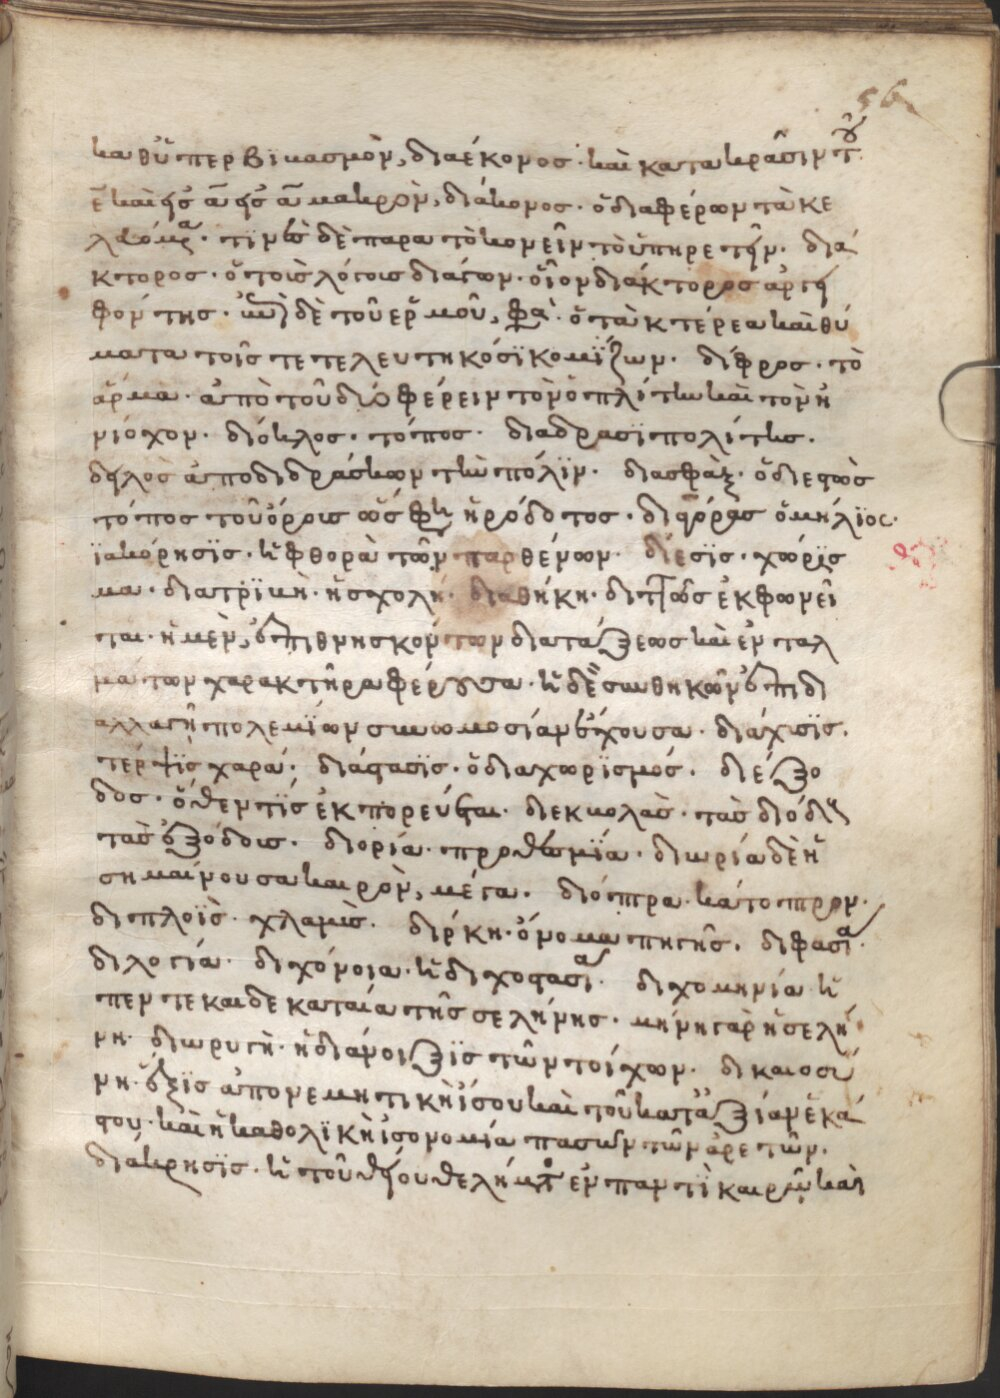 56
καθ' ὑπερβιβασμὸν, διαέκονος· καὶ κατα κρᾶσιν τοῦ
ε καὶ α εἰς α μακρὸν, διάκονος· ὁ διαφέρων τὰ κε
λευόμενα· τινὲς δὲ παρα τὸ κονεῖν τὸ ὑπηρετεῖν· διά
κτορος· ὁ τοῖς λόγοις διάγων· οἷον διάκτορος ἀργει
φόντης· δὲ τοῦ ἑρμοῦ, ὁ τὰ κτέρεα καὶ θύ
ματα τοῖς τετελευτηκόσϊ κομΐζων· δίφρος· τὸ
ἅρμα· ἀπὸ τοῦ δύο φέρειν τὸν ὁπλίτην καὶ τὸν ἡ
νίοχον· δίοκλος· τόπος· διαδρασιπολίτης·
δειλὸς ἀποδιδράσκων τὴν πόλϊν· διασφὰξ· ὁ διεστὼς
τόπος τοῦ ὄρους ὥς φη ἡρόδοτος· ὁ μήλϊος·
ϊακόρησϊς· ἡ φθορὰ τῶν παρθένων· δίεσϊς· χώρϊς
μα· διατριβὴ· ἡ σχολή· διαθήκη· διττῶς ἐκφωνεῖ
ται· ἡ μὲν, ἐπι θνησκόντων διατάξεως καὶ ἐνταλ
μάτων χαρακτῆρα φέρουσα· ἡ δὲ συνθηκῶν ἐπι δι
αλλαγῆ πολεμΐων συνωμοσίαν ἔχουσα· διάχυσϊς·
τέρψϊς χαρά· διάστασϊς· ὁ διαχωρϊσμός· διέξο
δος· ὅθεν τϊς ἐκπορεύεται· διεκβολὰς· τὰς διόδους
τὰς ἐξόδους· διορία· προθεσμΐα· διωρία δὲ ἡ
σημαίνουσα καιρὸν, μέγα· δίοπτρα· κάτοπτρον·
διπλοῒς· χλαμὺς· δίρκη· ὄνομα πηγῆς· διφασία·
διλογία· διχόνοια· ἡ διχοστασία· διχομηνία· ἡ
πεντεκαιδεκαταία τῆς σελήνης· μήνη γὰρ ἡ σελή
νη· διωρυγὴ· ἡ διάνοιξϊς τῶν τοίχων· δικαιοσύ
νη· ἕξϊς ἀπονεμητικὴ ἴσου καὶ τοῦ κατ' ἀξίαν ἑκά
στου· καὶ ἡ καθολϊκὴ ἰσονομία πασῶν τῶν ἀρετῶν·
διάκρησϊς· ἡ τοῦ θείου θελήματος ἐν παντὶ καιρῷ καὶ